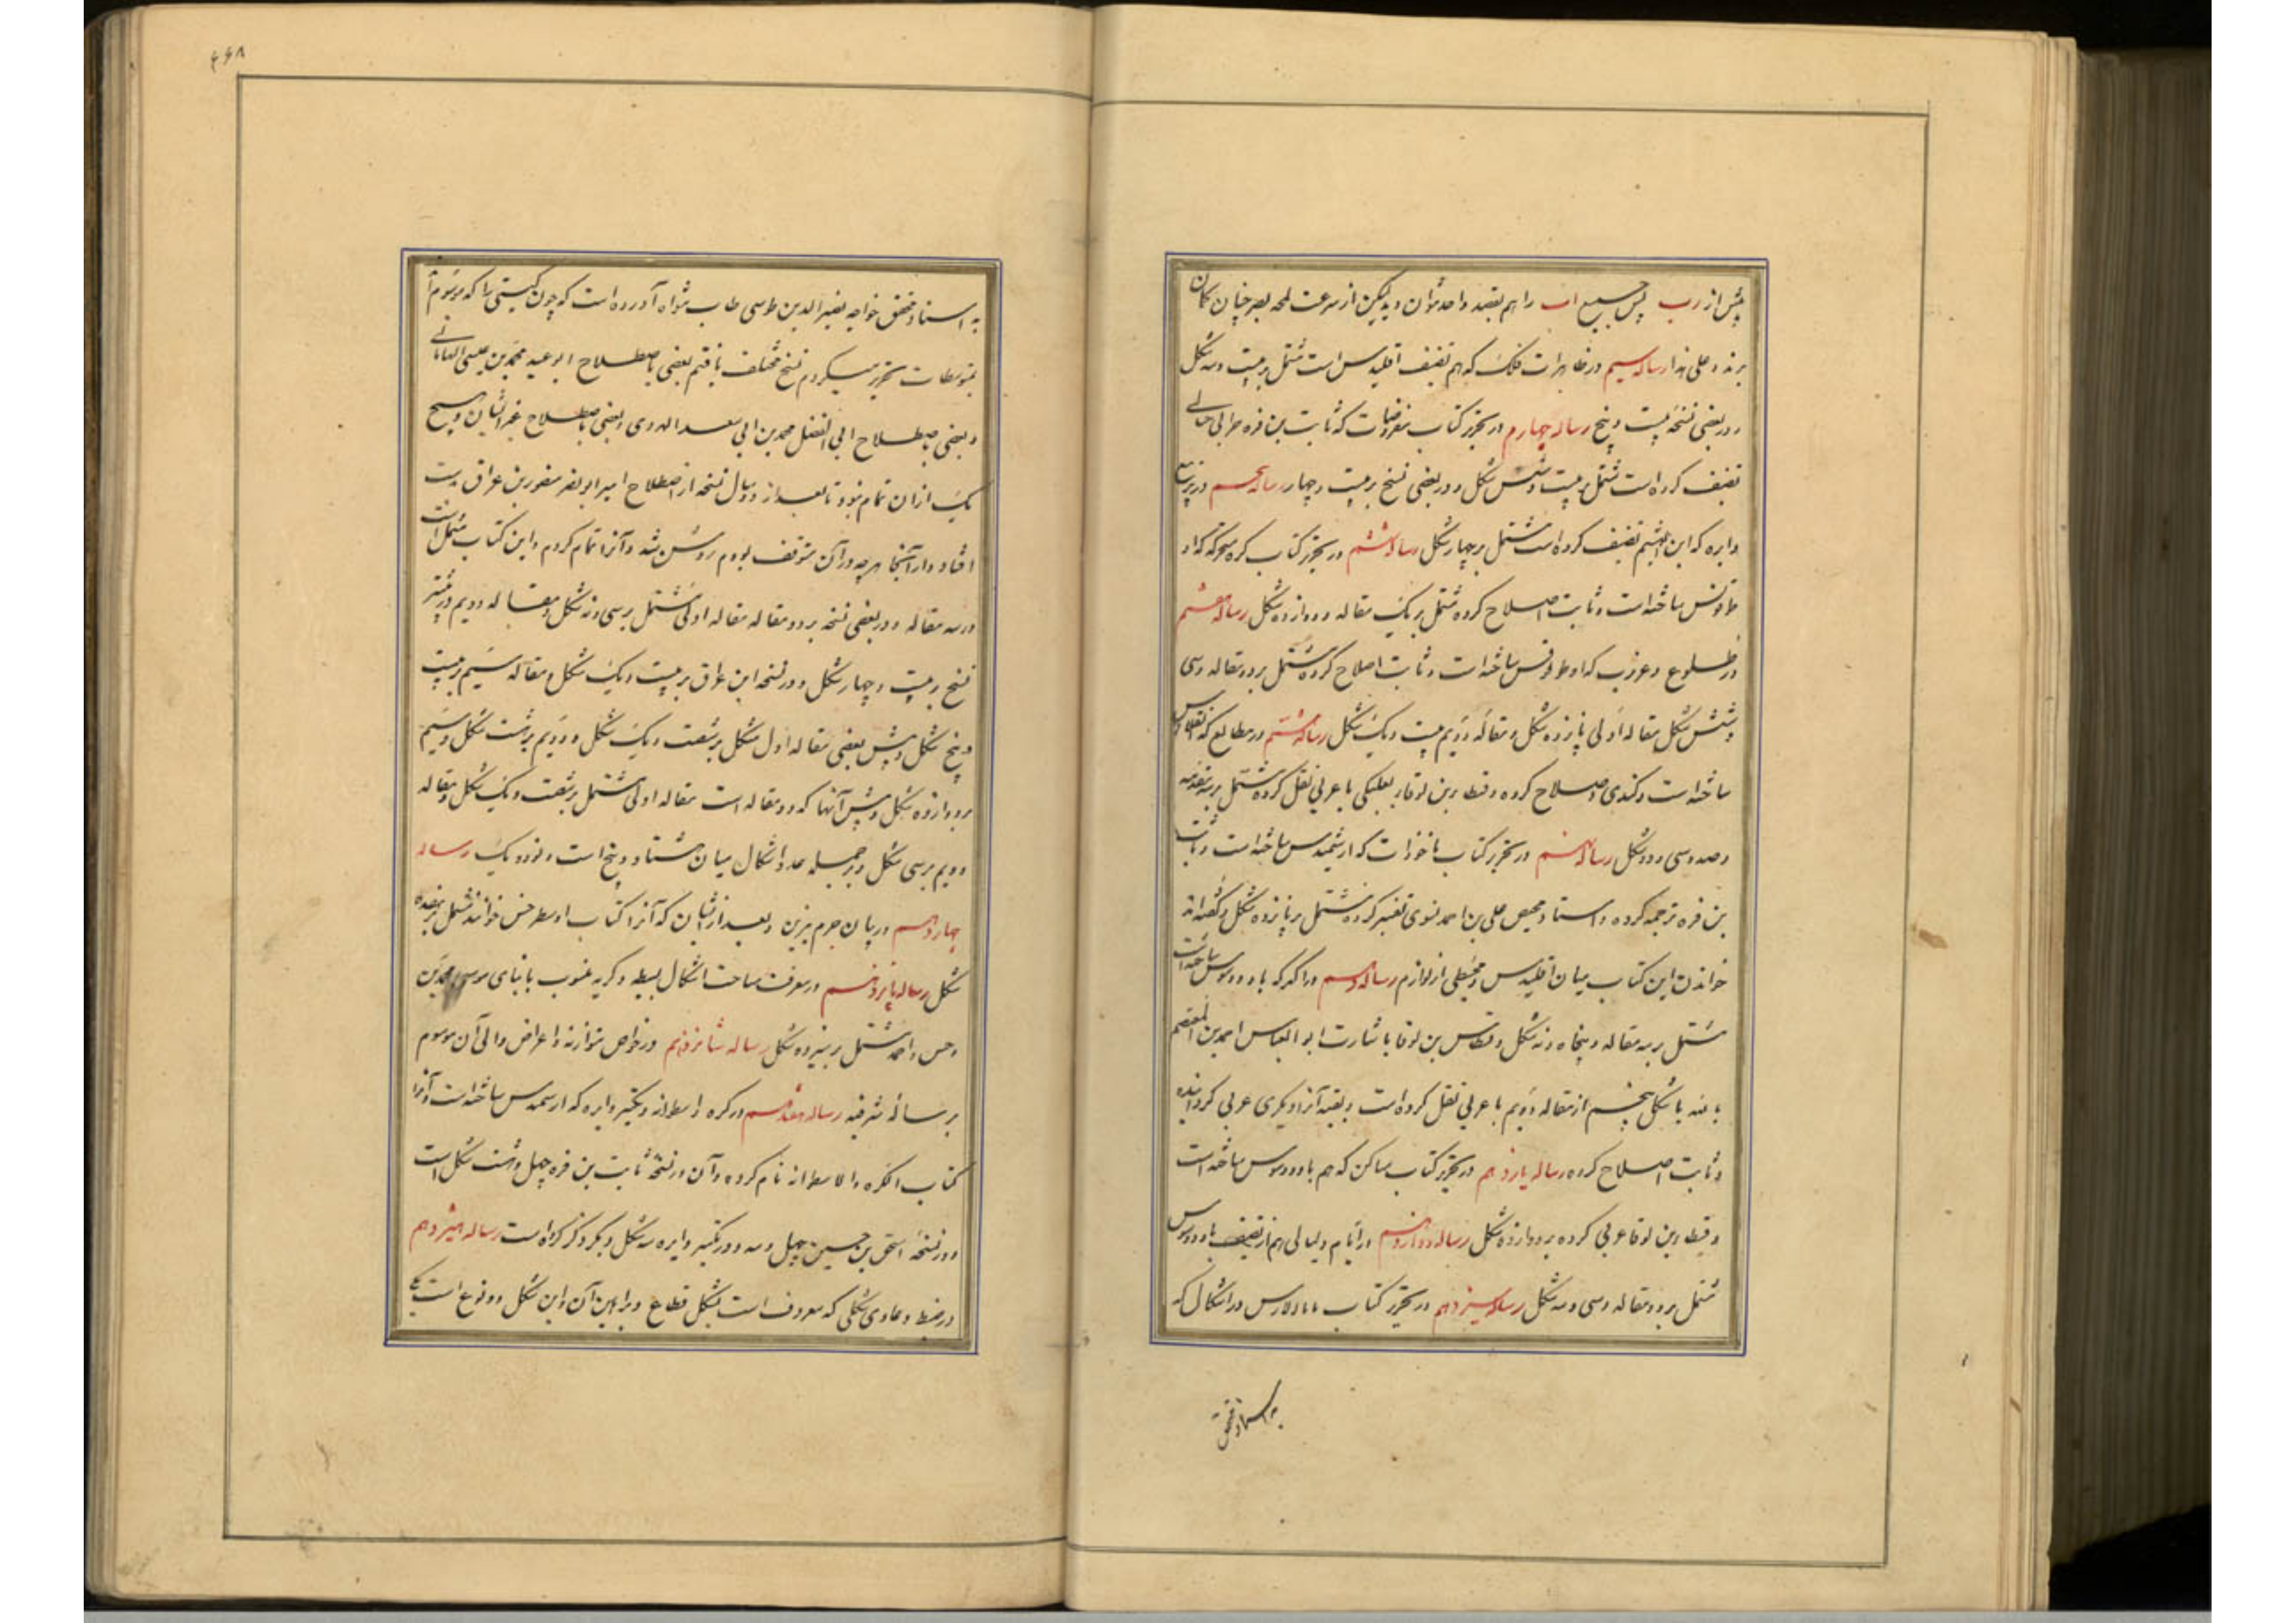 پیش از رب پس جمیع اب را هم بقصد واحد توان دید لیکن از سرعت لمحه بصر چنان کمان
برند و علی هذا رساله سیم در ظاهرات فلک که هم تصنیف اقلیدس است مشتمل بر بیست و سه شکل
و در بعضی نسخه بیست و پنج رساله چهارم در تحریر کتاب مفروضات که ثابت بن قره حرانی
تصنیف کرده است مشتمل بر بیست و شش شکل و در بعضی نسخ بر بیست و چهار رساله پنجم در تربیع
دایره که ابن الهیثم تصنیف کرده است مشتمل بر چهار شکل رساله ششم در تحریر کتاب کره متحرکه که او
طولوقس ساخته است و ثابت اصلاح کرده مشتمل بر یک مقاله و دوازده شکل رساله هفتم
در طلوع و غروب که اوطولوقس ساخته است و ثابت اصلاح کرده مشتمل بر دو مقاله و سی
و شش شکل مقاله اولی پانزده شکل و مقاله دویم بیست و یک شکل رساله هشتم در مطالع که ابسقلاوس
ساخته است و کندی اصلاح کرده و قسطا بن لوقا بعلبکی با عربی نقل کرده مشتمل بر سه مقدمه
و صد و سی و دو شکل رساله نهم در تحریر کتاب ماخوذات که ارشمیدس ساخته است و ثابت
بن قره ترجمه کرده و استاد علی بن احمد نسوی تفسیر کرده مشتمل بر پانزده شکل و گفته‌اند
خواندن این کتاب میان اقلیدس و مجسطی از لوازم رساله دهم در اکر که ثاودوسیوس ساخته است
مشتمل بر سه مقاله و پنجاه و نه شکل و قسطا بن لوقا باشارت ابو العباس احمد بن المعتصم
بالله تا شکل پنجم از مقاله دویم با عربی نقل کرده است و بقیه آنرا دیگری عربی گردانیده
و ثابت اصلاح کرده رساله یازدهم در تحریر کتاب مساکن که هم ثاودوسیوس ساخته است
و قسطا بن لوقا عربی کرده بر دوازده شکل رساله دوازدهم در ایام و لیالی هم از تصنیف ثاودوسیوس
مشتمل بر دو مقاله و سی و سه شکل رساله سیزدهم در تحریر کتاب مانالاوس در اشکال که
به استاد محقق
۴۶۸
به استاد محقق خواجه نصیر الدین طوسی طاب ثواه آورده است که چون کتبی را که موسوم
بمتوسطات تحریر میکردم نسخ مختلف یافتم بعضی باصطلاح ابو عبد محمد بن عیسی الماهانی
و بعضی باصطلاح ابی الفضل محمد بن ابی سعد الهروی و بعضی باصطلاح غیر ایشان و هیچ
یک از ان تمام نبود تا بعد از دو سال نسخه از اصطلاح امیر ابو نصر منصور بن عراق بدست
افتاد و از آنجا هر چه در آن متوقف بودم روشن شد و آنرا تمام کردم و این کتاب مشتمل است
در سه مقاله و در بعضی نسخه بر دو مقاله مقاله اولی مشتمل بر سی و نه شکل و مقاله دویم در بیشتر
نسخ بر بیست و چهار شکل و در نسخه ابن عراق بر بیست و یک شکل و مقاله سیم بر بیست
و پنج شکل و پیش بعضی مقاله اول مشکل بر شصت و یک شکل و دویم بر شت شکل و سیم
بر دوازده شکل و پیش آنها که دو مقاله است مقاله اولی مشتمل بر شصت و یک شکل و مقاله
دویم بر سی شکل و بر جمله عدد اشکال میان هشتاد و پنج است و نود و یک رساله
چهاردهم در بیان جرم نیرین و بعد از ایشان که آنرا کتاب ارسطرخس خوانند مشتمل بر هفده
شکل رساله پانزدهم در معرفت مساحت اشکال بسیطه و کریه منسوب با بنای موسی محمد بن
و حسن و احمد مشتمل بر هیزده شکل رساله شانزدهم در خواص متوازنه و اعراض والی آن موسوم
برساله شرفیه رساله هفدهم در کره و اسطوانه و تکسیر دایره که ارسمیدس ساخته است و آنرا
کتاب الکره والاسطوانه نام کرده و آن در نسخه ثابت بن قره چهل و هشت شکل است
و در نسخه اسحق بن حسین چهل و سه و در تکسیر دایره سه شکل دیگر ذکر کرده است رساله هیژدهم
در ضبط دعاوی شکلی که معروف است بشکل قطاع و براهین آن و این شکل دو نوع است یکی